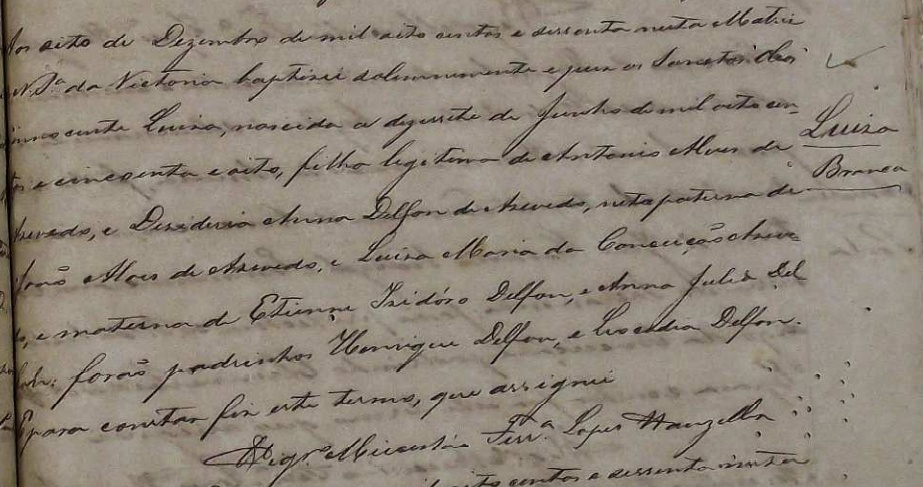 oito de Dezembro de mil oito centos e sessenta nesta Matriz
N. Sª da Victoria baptisei solemnemente e puz os Sanctos Oleos
innocente Luiza, nascida a dezesete de Junho de mil oito cen-
tos e cincoenta e oito, filha legitima de Antonio Alves de
Luiza
Branca
Azevedo, e Desideria Anna Delfon de Azevedo, neta paterna de
João Alves de Azevedo, e Luiza Maria da Conceição Azeve-
do, e materna de Etienne Izidóro Delfon, e Anna Julia Del
forão padrinhos Henrique Delfon, e Leocadia Delfon.
E para constar fiz este termo, que assignei
O Vigrº Ferrª Lopes
oito centos e sessenta nesta